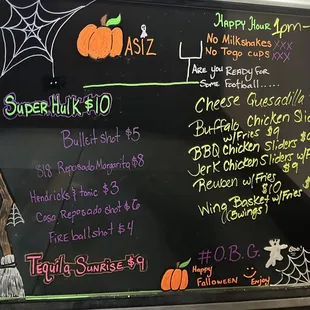 ASIZ
Happy Hour 1pm-
No Milkshakes xxx
No Togo cups xxx
Are you Ready for
Some Football.....
Super Hulk $10
Bulleit shot $5
818 Reposado Margarita $8
Hendricks & tonic $3
Casa Reposado shot $6
Fireball shot $4
Tequila Sunrise $9
Cheese Quesadilla
Buffalo Chicken Slid
w/Fries $9
BBQ Chicken Sliders
Jerk Chicken Sliders w/F
$9
Reuben w/Fries
$10
Wing Basket w/Fries
(5wings) $
#O.B.G.
Happy
Halloween
Enjoy